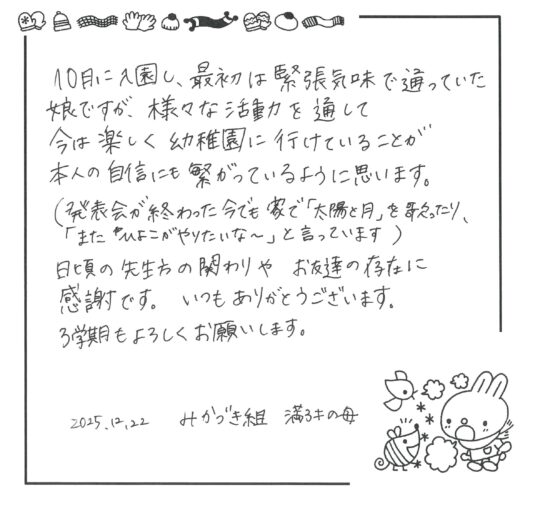 10月に入園し、最初は緊張気味で通っていた
娘ですが、様々な活動を通して
今は楽しく幼稚園に行けていることが
本人の自信にも繋がっているように思います。
(発表会が終わった今でも家で「太陽と月」を歌ったり、
「また"ひよこがやりたいな〜」と言っています)
日頃の先生方の関わりや お友達の存在に
感謝です。いつもありがとうございます。
3学期もよろしくお願いします。
2025.12.22 みかづき組 の母